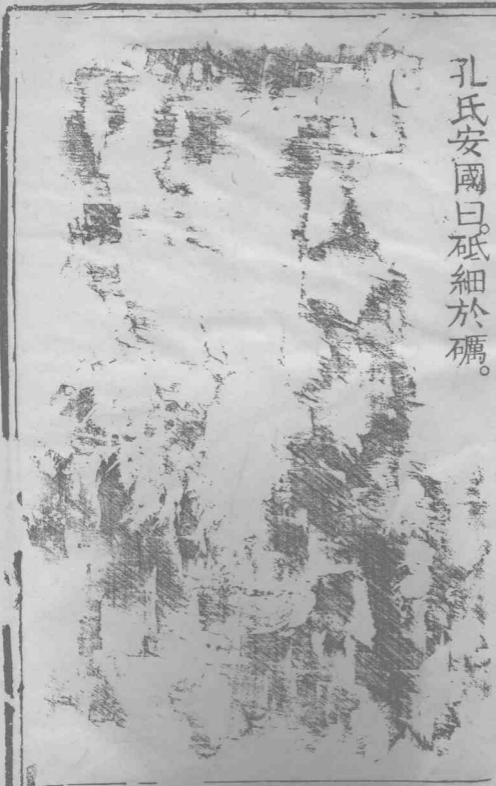 孔氏安國曰。砥細於礪。